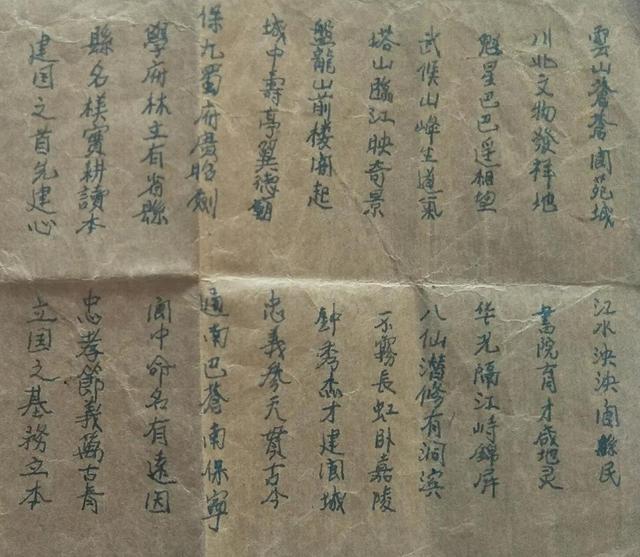 雲山蒼蒼阆苑城
江水泱泱阆縣民
川北文物發祥地
書院育才咸地灵
魁星巴巴遥相望
华光隔江峙錦屏
武侯山峰生道氣
八仙潜修有洞滨
塔山臨江映奇景
不霧長虹卧嘉陵
盤龍山前楼阁起
鈡秀杰才建阆城
城中壽亭翼德廟
忠義參天貫古今
保九蜀府廣昭劍
通南巴蒼南保寧
學府林立有省縣
阆中命名有遠因
縣名樸實耕讀本
忠孝節義萬古春
建国之首先建心
立国之基務立本